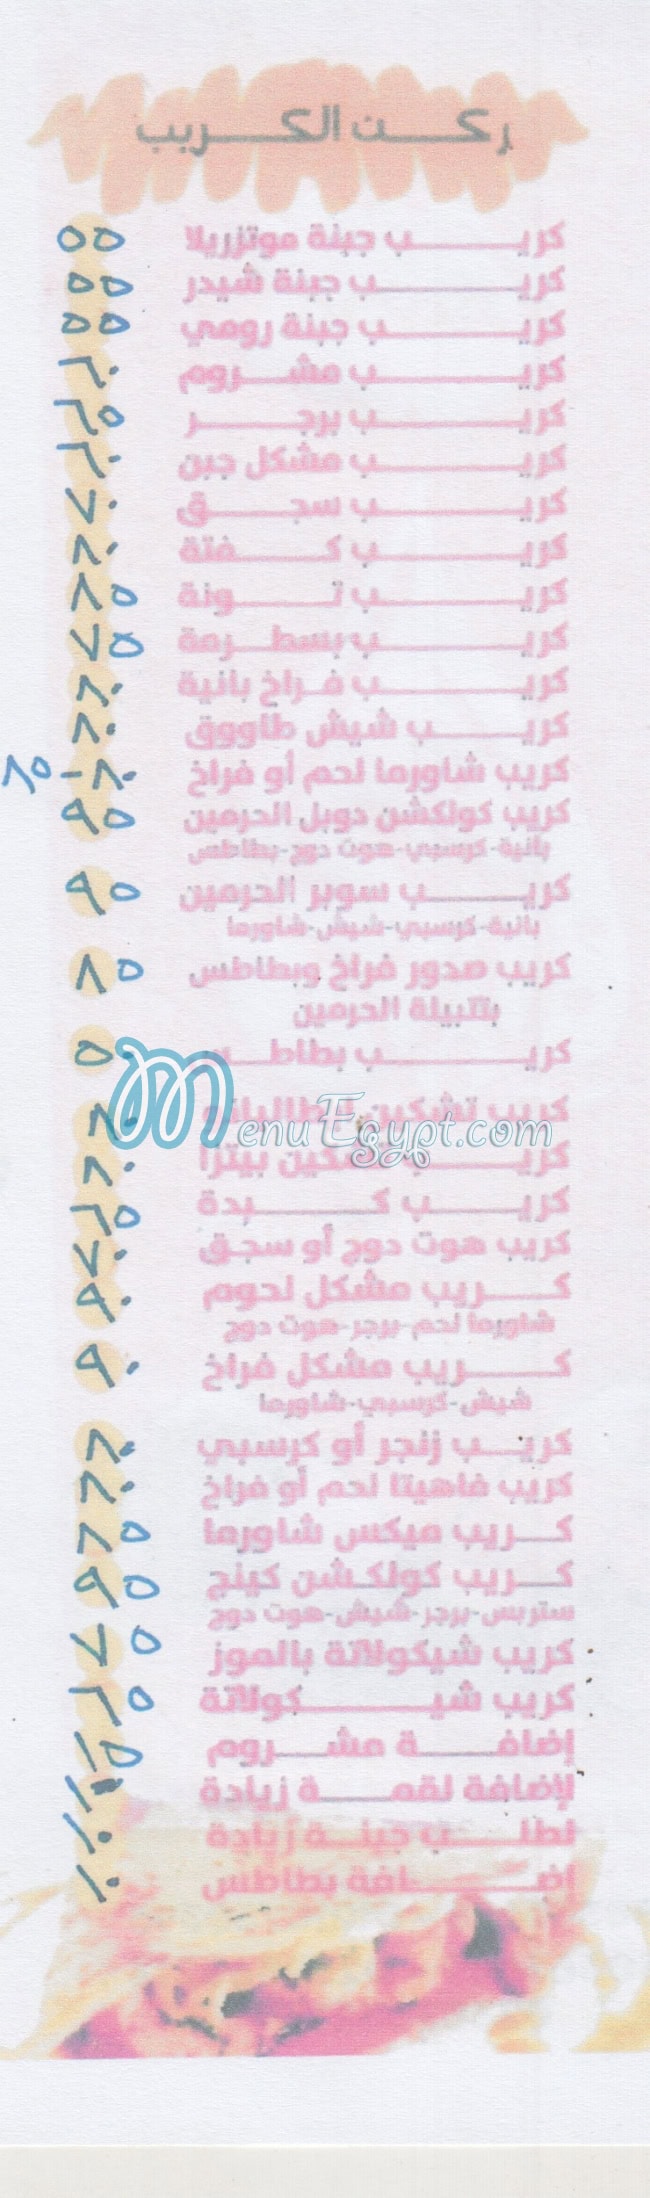 ركن الكريب
كريب جبنة موتزريلا ٥٥
كريب جبنة شيدر ٥٥
كريب جبنة رومي ٥٥
كريب مشروم ٦٠
كريب برجر ٦٥
كريب مشكل جبن ٦٠
كريب سجق ٧٠
كريب كفتة ٨٠
كريب تونة ٨٥
كريب بسطرمة ٧٥
كريب فراخ بانية ٨٠
كريب شيش طاووق ٨٠
كريب شاورما لحم أو فراخ ٨٠-٨٥
كريب كولكشن دوبل الحرمين ٩٥
بانية-كرسبي-هوت دوج-بطاطس
كريب سوبر الحرمين ٩٥
بانية-كرسبي-شيش-شاورما
كريب صدور فراخ وبطاطس ٨٥
بتتبيلة الحرمين
كريب بطاطس ٥٠
MenuEgypt.com
كريب تشكين ٨٠
كريب تشكين بيتزا ٨٠
كريب كبدة ٦٥
كريب هوت دوج أو سجق ٧٠
كريب مشكل لحوم ٩٠
شاورما لحم-برجر-هوت دوج
كريب مشكل فراخ ٩٠
شيش-كرسبي-شاورما
كريب زنجر أو كرسبي ٨٠
كريب فاهيتا لحم أو فراخ ٨٠
كريب ميكس شاورما ٨٥
كريب كولكشن كينج ٩٥
ستربس-برجر-شيش-هوت دوج
كريب شيكولاتة بالموز ٧٥
كريب شيكولاتة ٦٥
إضافة مشروم ١٥
لإضافة لقمة زيادة ١٠
لطلب جبنة زيادة ١٠
إضافة بطاطس ١٠